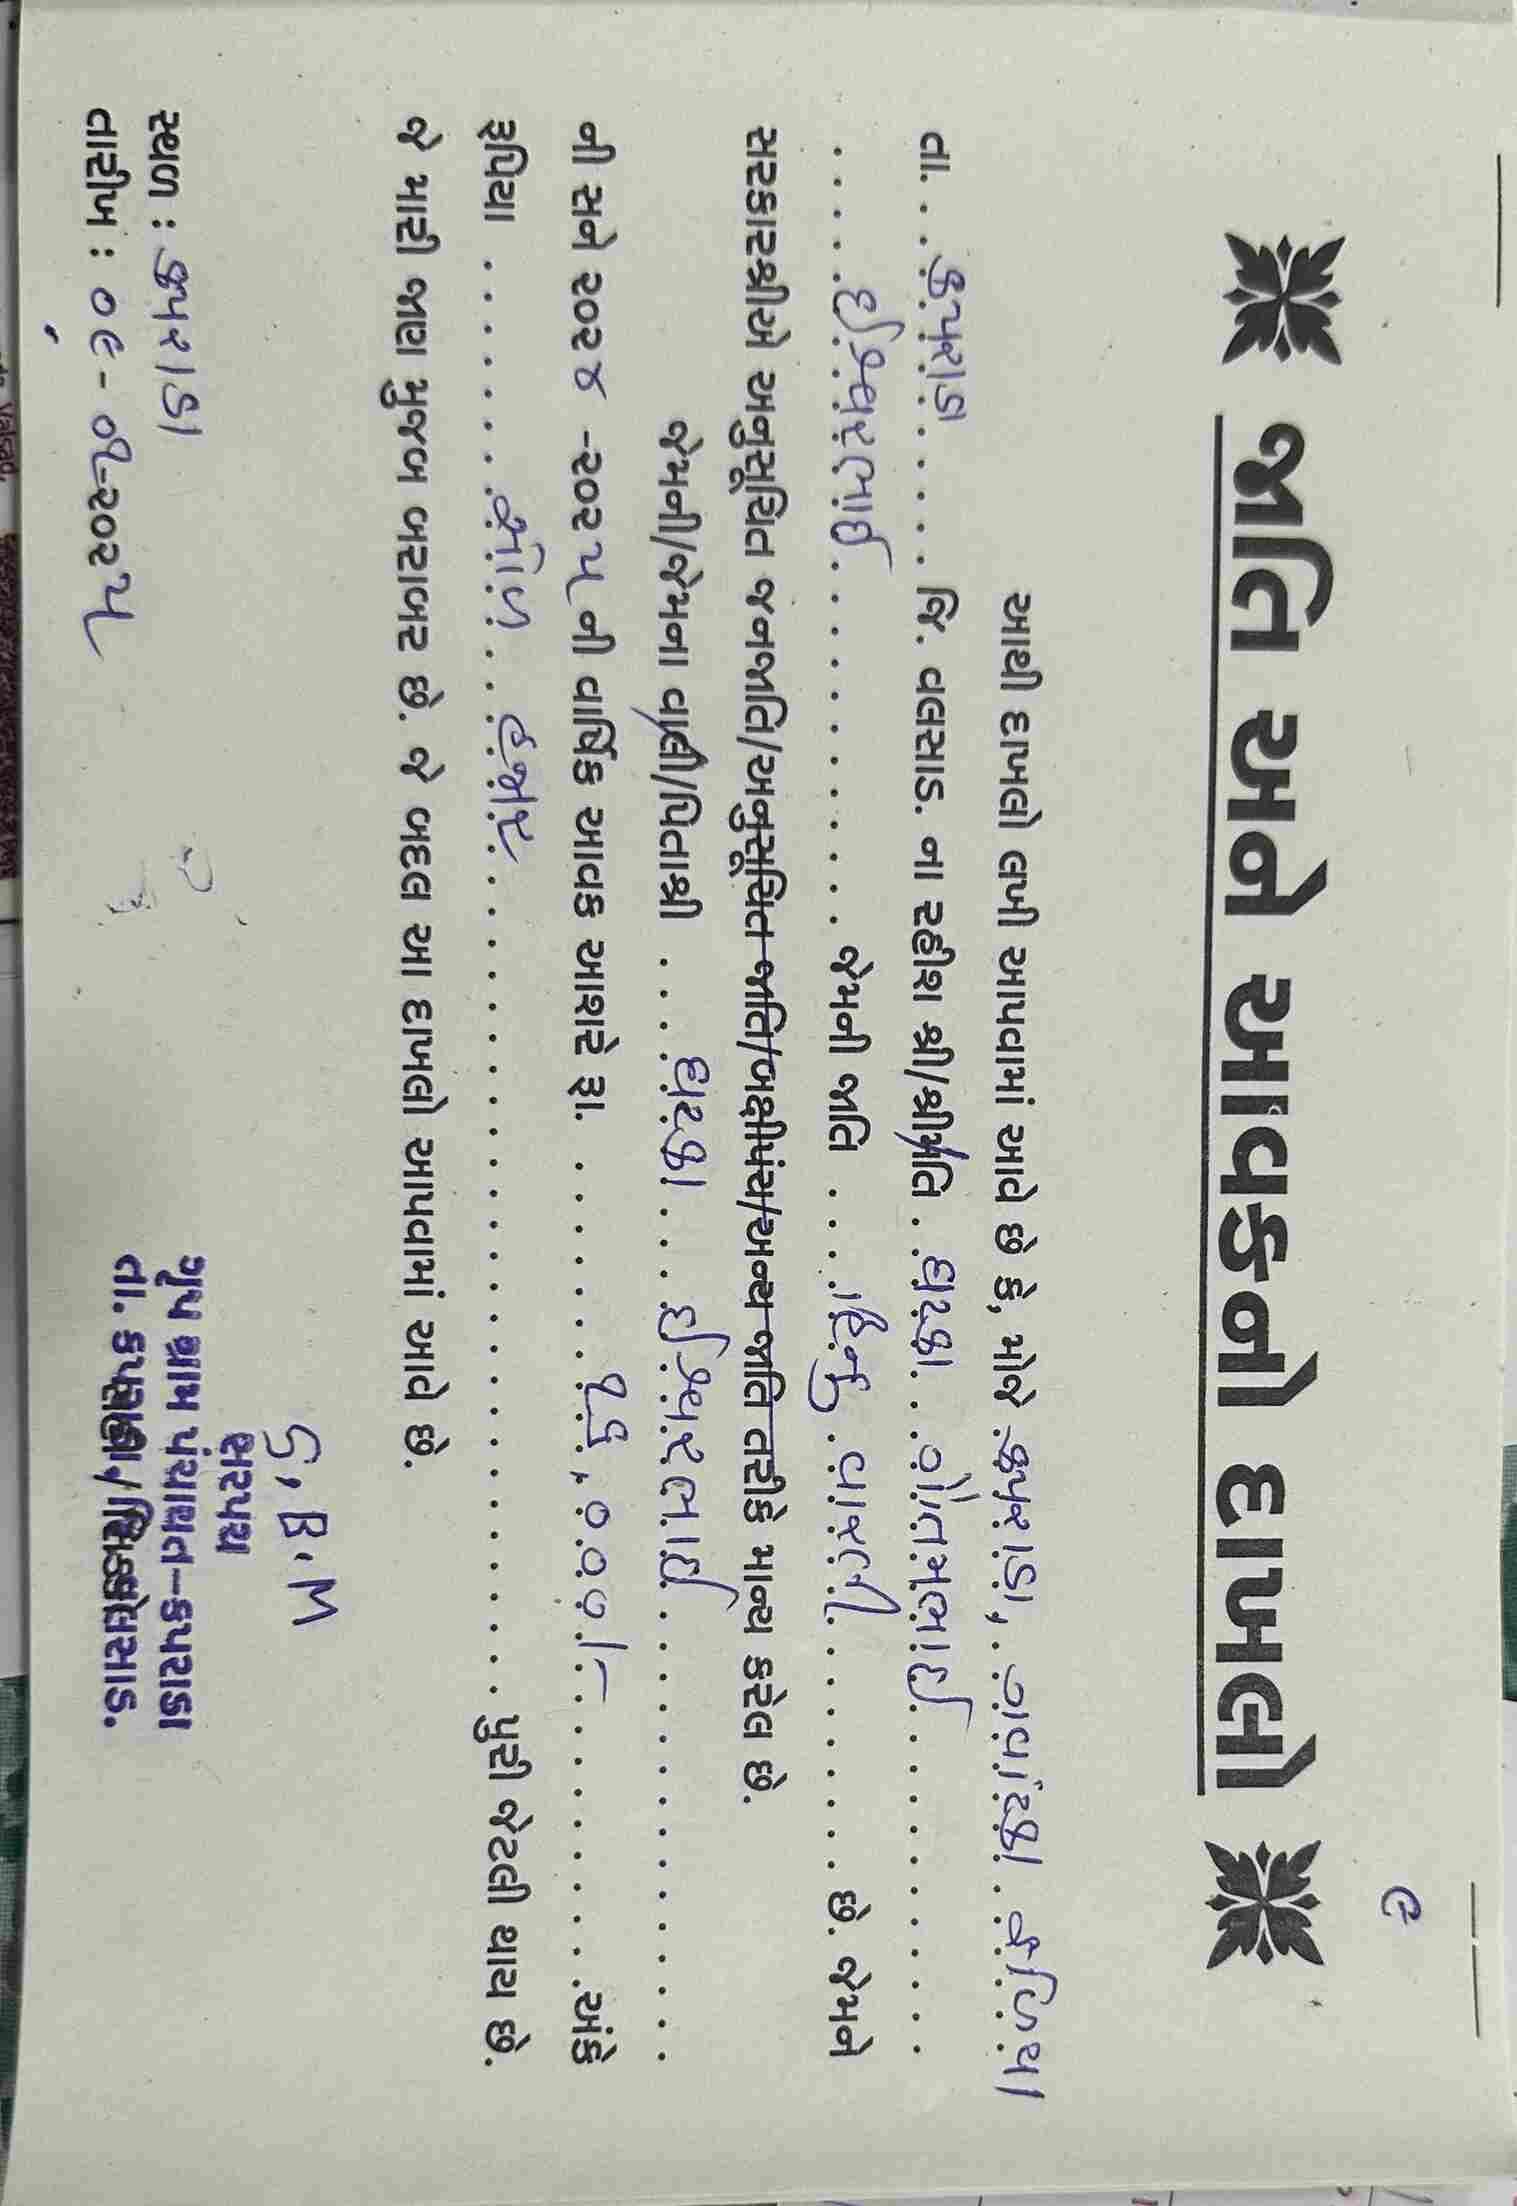 ૯
જાતિ અને આવકનો દાખલો
આથી દાખલો લખી આપવામાં આવે છે કે, મોજે કપરાડા, ફળિયા
તા. કપરાડા જિ. વલસાડ. ના રહીશ શ્રી/શ્રીમતિ ઘાટકા ગૌતમભાઈ
ઈશ્વરભાઈ જેમની જાતિ હિન્દુ વારલી છે. જેમને
સરકારશ્રીએ અનુસૂચિત જનજાતિ/અનુસૂચિત જાતિ/બક્ષીપંચ/અન્ય જાતિ તરીકે માન્ય કરેલ છે.
જેમની/જેમના વાલી/પિતાશ્રી ઘાટકા ઈશ્વરભાઈ
ની સને ૨૦૨૪ -૨૦૨૫ ની વાર્ષિક આવક આશરે રૂા. ૧૬,૦૦૦/- અંકે
રૂપિયા સોળ હજાર પુરી જેટલી થાય છે.
જે મારી જાણ મુજબ બરાબર છે. જે બદલ આ દાખલો આપવામાં આવે છે.
સ્થળ : કપરાડા
તારીખ : ૦૯-૦૧-૨૦૨૫
G.B.M
સરપંચ
ગૃપ ગ્રામ પંચાયત-કપરાડા
તા. કપરાડા, જિ. વલસાડ.